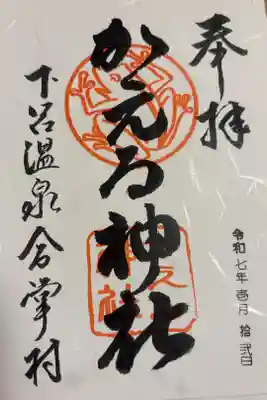 奉拝
かえる神社
下呂温泉合掌村
令和七年壱月拾弐日